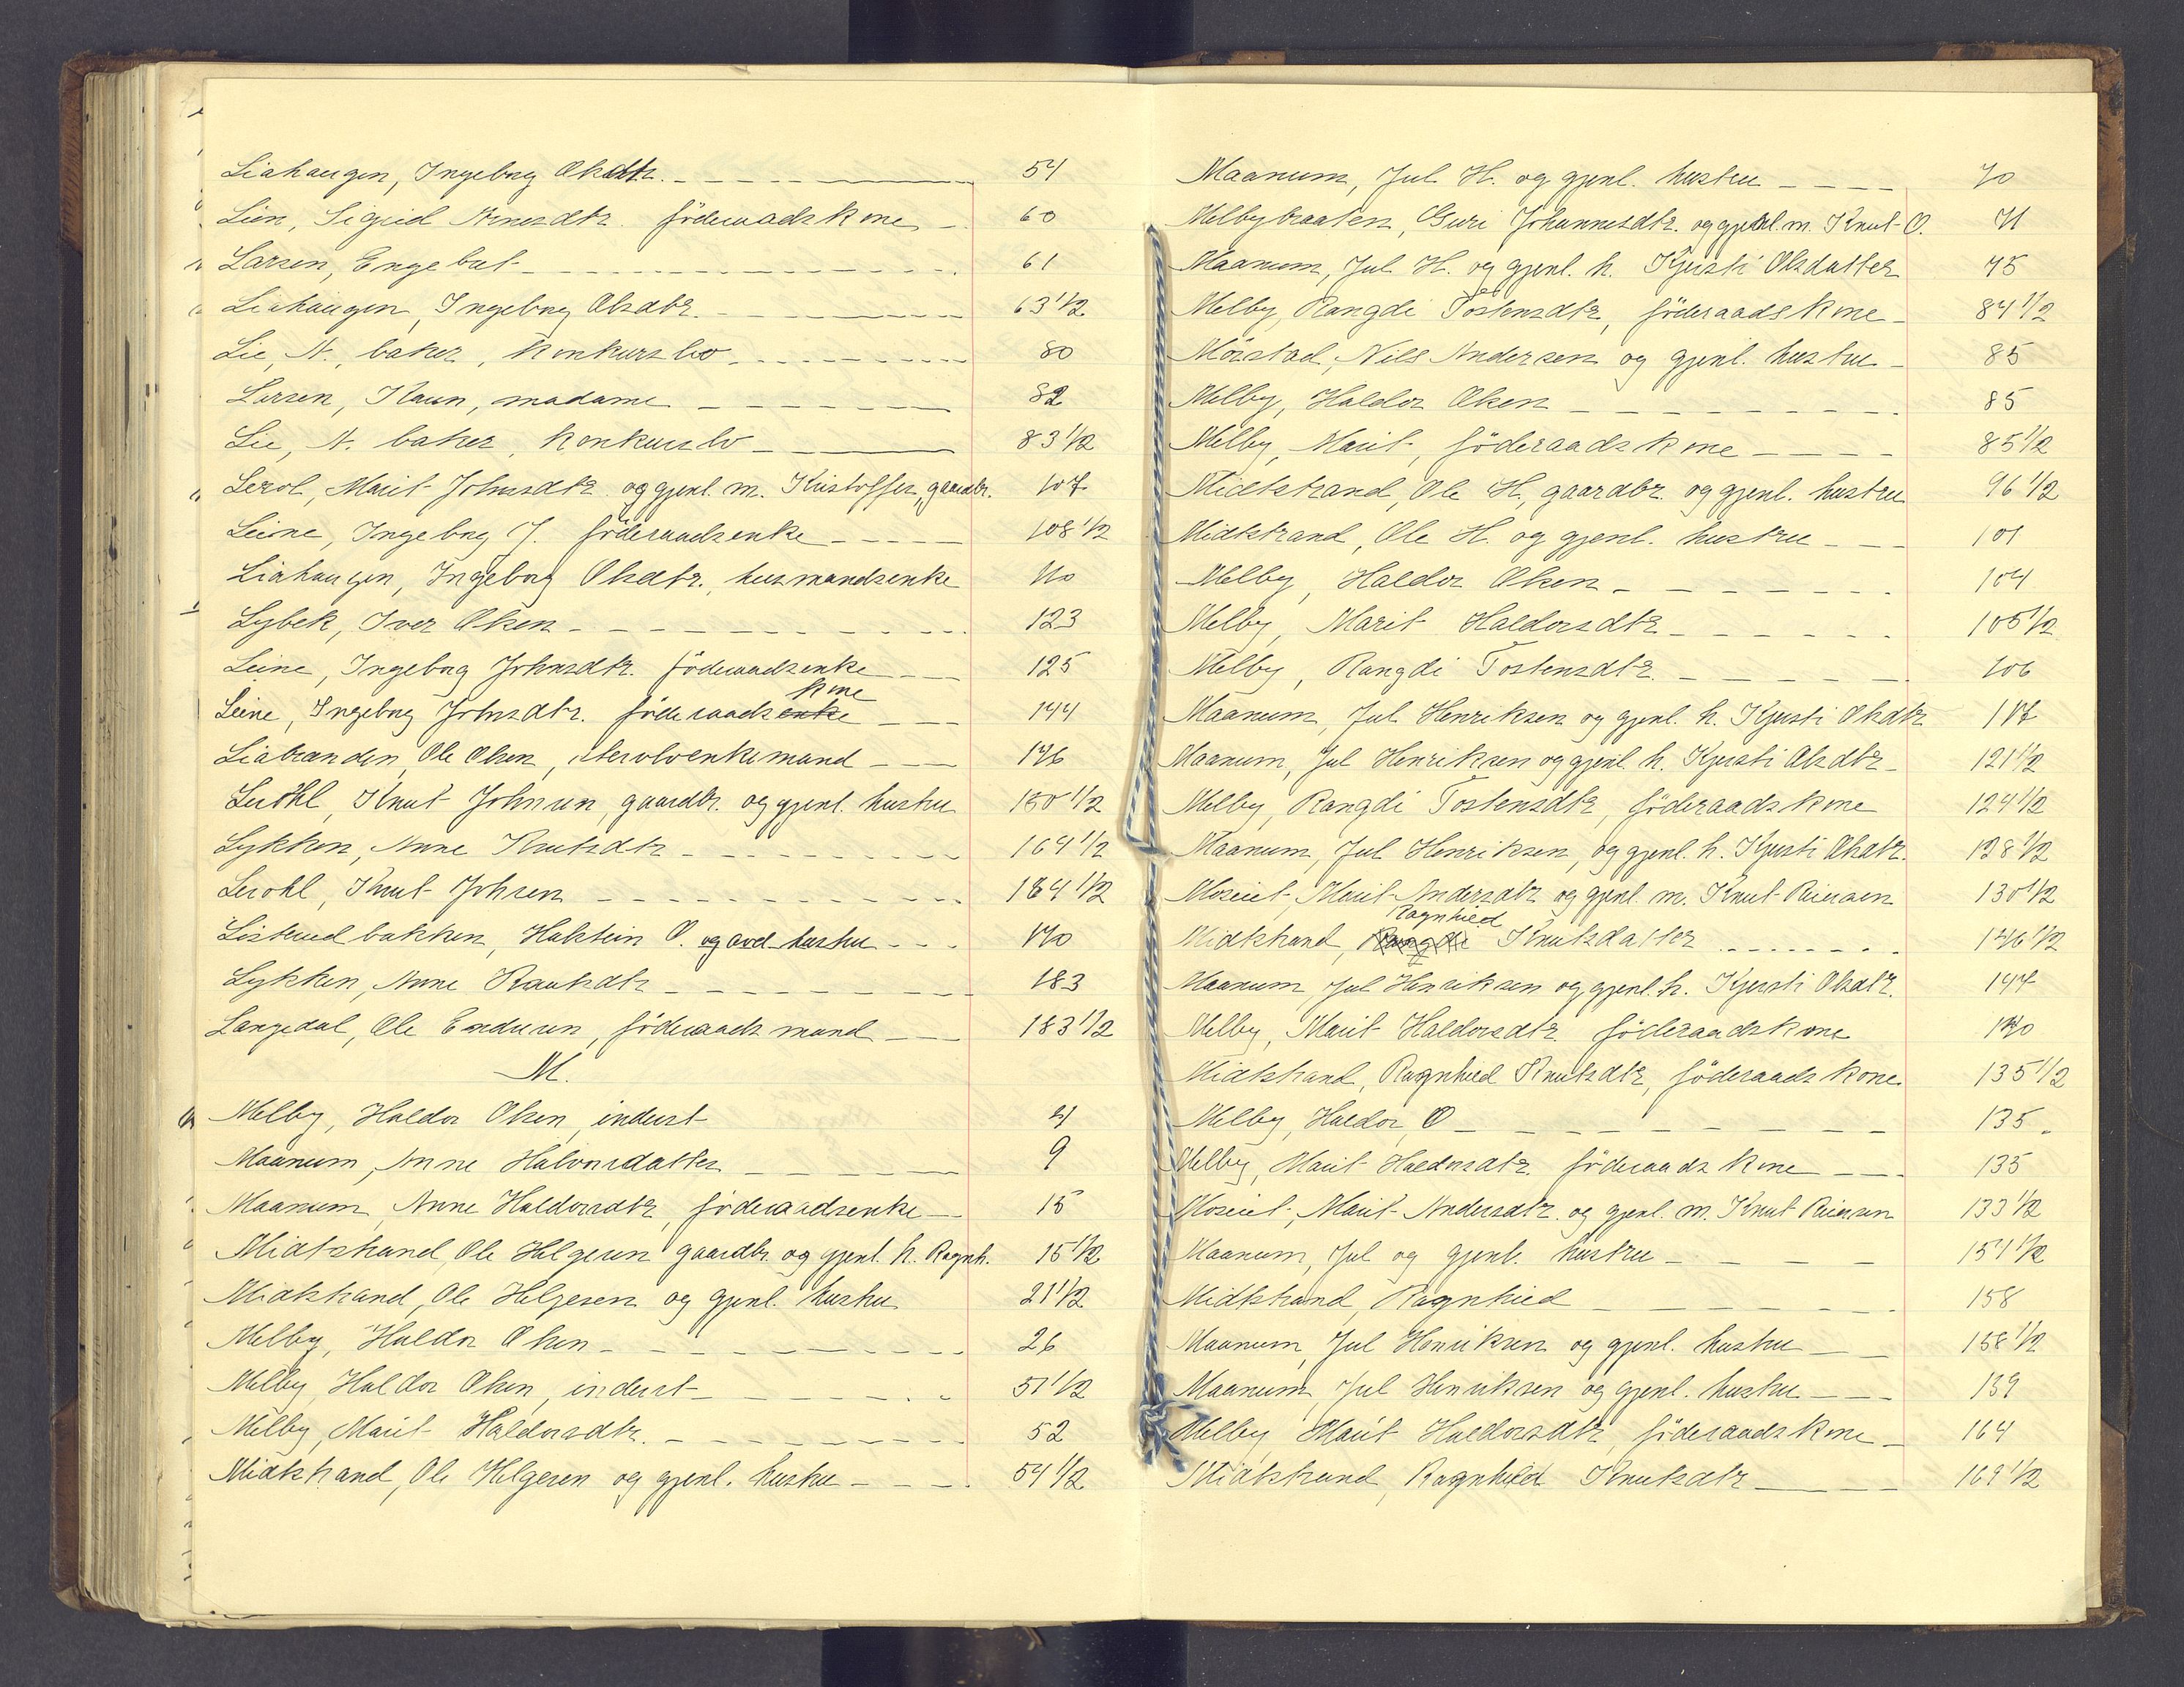 Liahaugen, Ingeborg Olsdtr. 54
Lien, Sigrid Arnesdtr. föderaadskone 60
Larsen, Engebret 61
Liahaugen, Ingeborg Olsdtr. 63 1/2
Lie, A., baker, konkursbo 80
Larsen, Karen, madame 82
Lie, A. baker, konkursbo 83 1/2
Lerol, Marit Johnsdtr. og gjenl. m. Kristoffer, gaardbr. 107
Leine, Ingeborg J. föderaadsenke 108 1/2
Liahaugen, Ingeborg Olsdtr., husmandsenke 110
Lybek, Iver Olsen 123
Leine, Ingeborg Johnsdtr. föderaadsenke 125
kone
Leine, Ingeborg Johnsdtr. föderaadsenke 144
Liabraaden, Ole Olsen, enkemand 146
Leröhl, Knut Johnsen, gaardbr. og gjenl. hustru 150 1/2
Lykken, Anne Knutsdtr 164 1/2
Leröhl, Knut Johsen 164 1/2
Listuedbakken, Halstein O. og avd. hustru 170
Lykken, Anne Knutsdtr 183
Langedal, Ole Endresen, föderaads mand 183 1/2
M.
Melby, Haldor Olsen, indust 4
Maanum, Anne Halvorsdatter 9
Maanum, Anne Haldorsdtr, föderaadsenke 15
Midtstrand, Ole Helgesen gaardbr. og gjenl. h. Ragnh. 15 1/2
Midtstrand, Ole Helgesen og gjenl. hustru 21 1/2
Melby, Haldor Olsen 26
Melby, Haldor Olsen, indust 51 1/2
Melby, Marit Haldorsdtr. 52
Midtstrand, Ole Helgesen og gjenl. hustru 54 1/2
Maanum, Jul H. og gjenl. hustru 70
Melbybraaten, Guri Johannesdtr. og gjenl. m. Knut O. 71
Maanum, Jul H. og gjenl. h. Kjersti Olsdatter 75
Melby, Rangdi Tostensdtr, föderaadskone 84 1/2
Mörstad, Nils Andersen og gjenl. hustru 85
Melby, Haldor Olsen 85
Melby, Marit, föderaadskone 85 1/2
Midtstrand, Ole H, gaardbr. og gjenl. hustru 96 1/2
Midtstrand, Ole H. og gjenl. hustru 101
Melby, Haldor Olsen 104
Melby, Marit Haldorsdtr 105 1/2
Melby, Rangdi Tostensdtr 106
Maanum, Jul Henriksen og gjenl. h. Kjersti Olsdtr 117
Maanum, Jul Henriksen og gjenl. h. Kjersti Olsdtr 121 1/2
Melby, Rangdi Tostensdtr, föderaadskone 124 1/2
Maanum, Jul Henriksen, og gjenl. h. Kjersti Olsdtr. 128 1/2
Moseiet, Marit Andersdtr og gjenl. m. Knut Reiersen 130 1/2
Ragnhild
Midtstrand, Rangdi Knutsdatter 146 1/2
Maanum, Jul Henriksen og gjenl. h. Kjersti Olsdtr. 147
Melby, Marit Haldorsdtr föderaadskone 140
Midtstrand, Ragnhild Knutsdtr, föderaadskone 135 1/2
Melby, Haldor, O 135
Melby, Marit Haldorsdtr. föderaadskone 135
Moseiet, Marit Andersdtr. og gjenl. m. Knut Reiersen 133 1/2
Maanum, Jul og gjenl. hustru 151 1/2
Midtstrand, Ragnhild 158
Maanum, Jul Henriksen og gjenl. hustru 158 1/2
Maanum, Jul Henriksen og gjenl. hustru 139
Melby, Marit Haldorsdtr, föderaadskone 164
Midtstrand, Ragnhild Knutsdtr 169 1/2